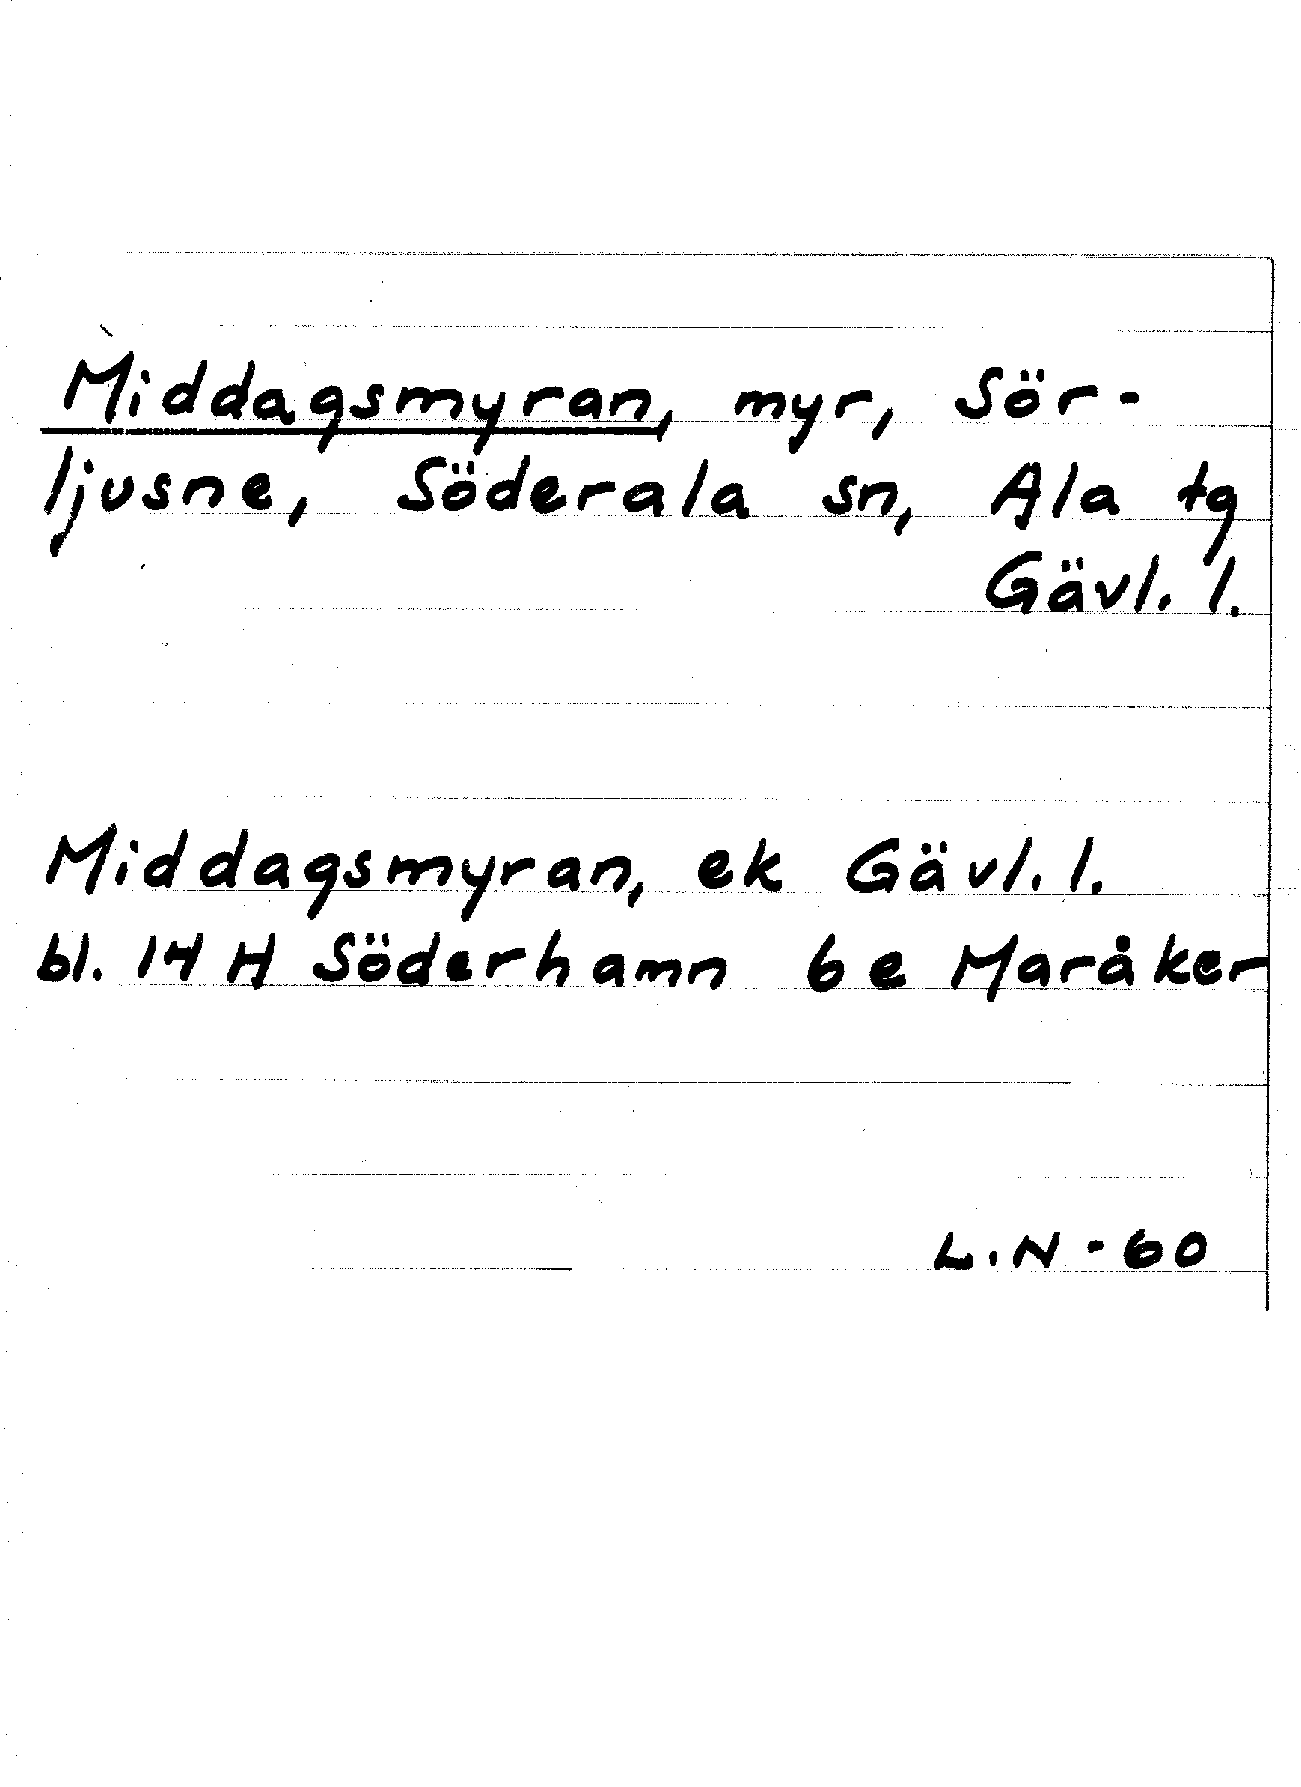 Middagsmyran, myr, Sör-
ljusne, Söderala sn, Ala tg
Gävl. l.
Middagsmyran, ek Gävl. l.
bl. 14 H Söderhamn 6 e Maråker
L.N - 60